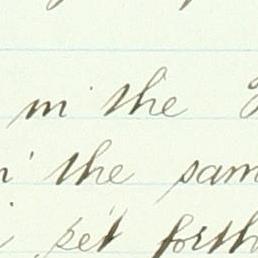 in the
the same
set forth